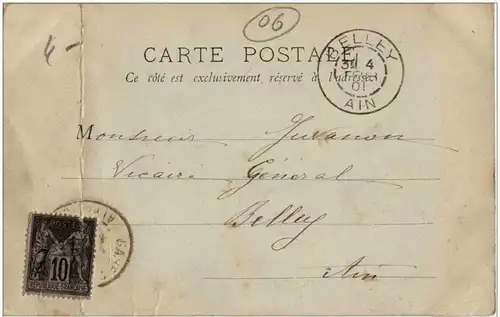 06
4-
BELLEY
CARTE POSTALE
3E 4
Ce côté est exclusivement réservé à l'adresse
01
AIN
Monsieur Juvanon
Vicaire Général
Belley
Ain
10
REPUBLIQUE FRANCAISE